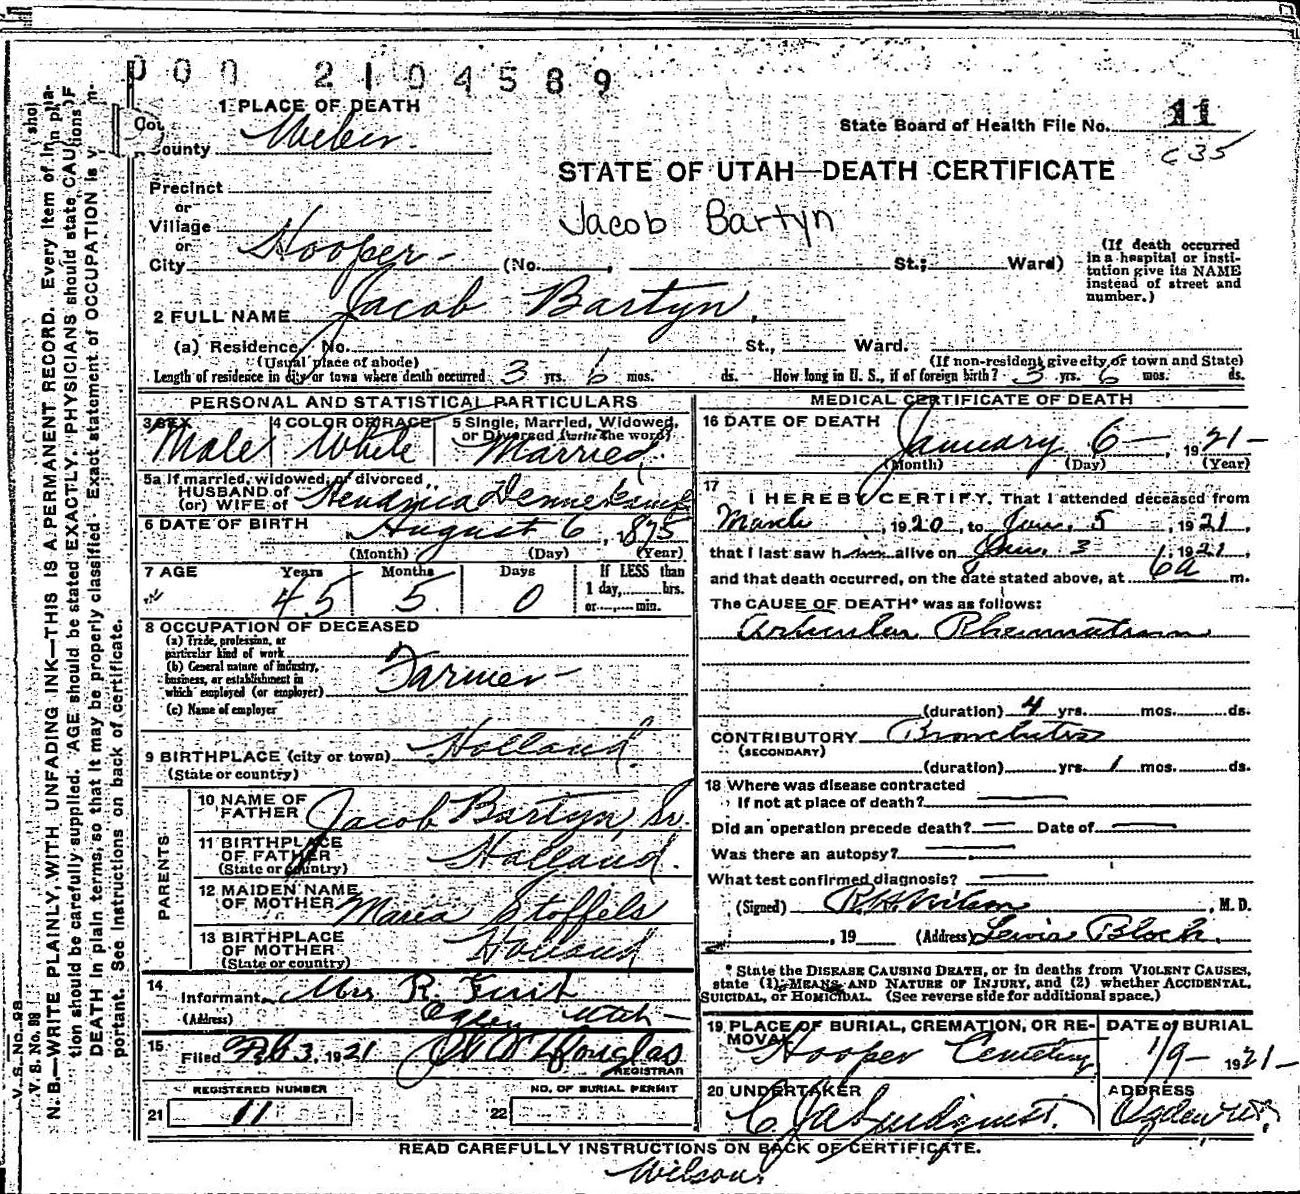 000 2104589
1 PLACE OF DEATH
County Weber.
State Board of Health File No. 11
C35
STATE OF UTAH—DEATH CERTIFICATE
Precinct
or
Village
Jacob Bartyn
or
City Hooper- (No. , St.; Ward)
(If death occurred
in a hospital or insti-
tution give its NAME
instead of street and
number.)
2 FULL NAME Jacob Bartyn.
(a) Residence, No. St., Ward.
(Usual place of abode) (If non-resident give city or town and State)
Length of residence in city or town where death occurred 3 yrs. 6 mos. ds. How long in U. S., if of foreign birth? 3 yrs. 6 mos. ds.
PERSONAL AND STATISTICAL PARTICULARS
3 SEX Male
4 COLOR OR RACE White
5 Single, Married, Widowed,
or Divorced (write the word)
Married.
5a If married, widowed, or divorced
HUSBAND of
(or) WIFE of Hendrica Dennekamp
6 DATE OF BIRTH August 6, 1875
(Month) (Day) (Year)
7 AGE Years Months Days If LESS than
1 day, hrs.
or min.
45 5 0
8 OCCUPATION OF DECEASED
(a) Trade, profession, or
particular kind of work
(b) General nature of industry,
business, or establishment in
which employed (or employer)
Farmer-
(c) Name of employer
9 BIRTHPLACE (city or town) Holland.
(State or country)
PARENTS
10 NAME OF
FATHER Jacob Bartyn, Sr.
11 BIRTHPLACE
OF FATHER Holland.
(State or country)
12 MAIDEN NAME
OF MOTHER Maria Stoffels
13 BIRTHPLACE
OF MOTHER Holland
(State or country)
14
Informant Mrs R.
(Address) Ogden Utah-
15
Filed Feb 3, 1921 Douglas
REGISTRAR
REGISTERED NUMBER
21 11
NO. OF BURIAL PERMIT
22
MEDICAL CERTIFICATE OF DEATH
16 DATE OF DEATH
January 6-, 1921-
(Month) (Day) (Year)
17
I HEREBY CERTIFY, That I attended deceased from
March, 1920, to Jan. 5, 1921,
that I last saw him alive on Jan. 3, 1921,
and that death occurred, on the date stated above, at 6a m.
The CAUSE OF DEATH* was as follows:
Articular Rheumatism
(duration) 4 yrs. mos. ds.
CONTRIBUTORY Bronchitis
(SECONDARY)
(duration) yrs. 1 mos. ds.
18 Where was disease contracted
If not at place of death?
Did an operation precede death? Date of
Was there an autopsy?
What test confirmed diagnosis?
(Signed) R.H. Wilson, M. D.
, 19 (Address) Lewis Block.
* State the DISEASE CAUSING DEATH, or in deaths from VIOLENT CAUSES,
state (1) MEANS AND NATURE OF INJURY, and (2) whether ACCIDENTAL,
SUICIDAL, or HOMICIDAL. (See reverse side for additional space.)
19 PLACE OF BURIAL, CREMATION, OR RE-
MOVAL
Hooper Cemetery
DATE of BURIAL
1/9- 1921-
20 UNDERTAKER
C J A Lindquist.
ADDRESS
Ogden Ut.
READ CAREFULLY INSTRUCTIONS ON BACK OF CERTIFICATE.
Wilson.
V. S. No. 98
V. S. No. 98
N. B.—WRITE PLAINLY, WITH UNFADING INK—THIS IS A PERMANENT RECORD. Every item of
tion should be carefully supplied. AGE should be stated EXACTLY. PHYSICIANS should state CAUSE OF
DEATH in plain terms, so that it may be properly classified. Exact statement of OCCUPATION is v
portant. See instructions on back of certificate.